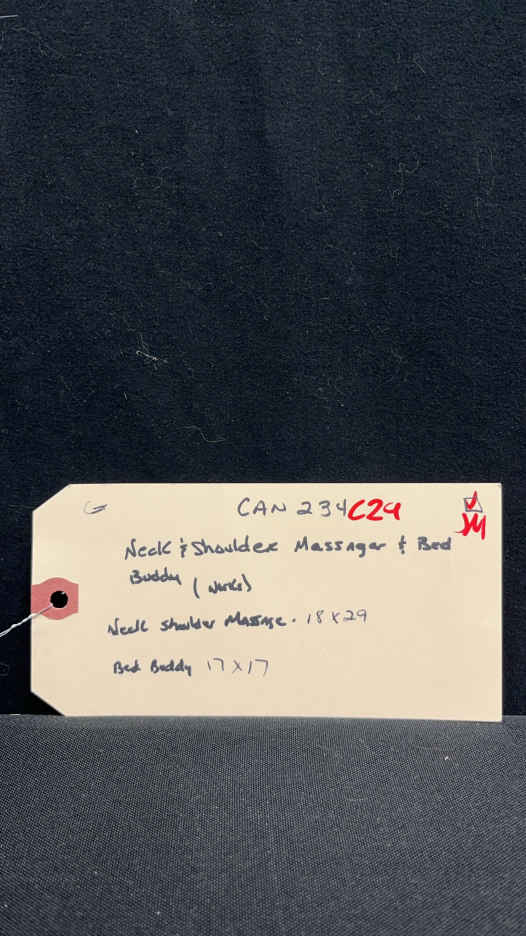 G CAN 234 C29
JM
Neck & Shoulder Massager & Bed
Buddy (works)
Neck Shoulder Massage. 18 x 29
Bed Buddy 17 x 17